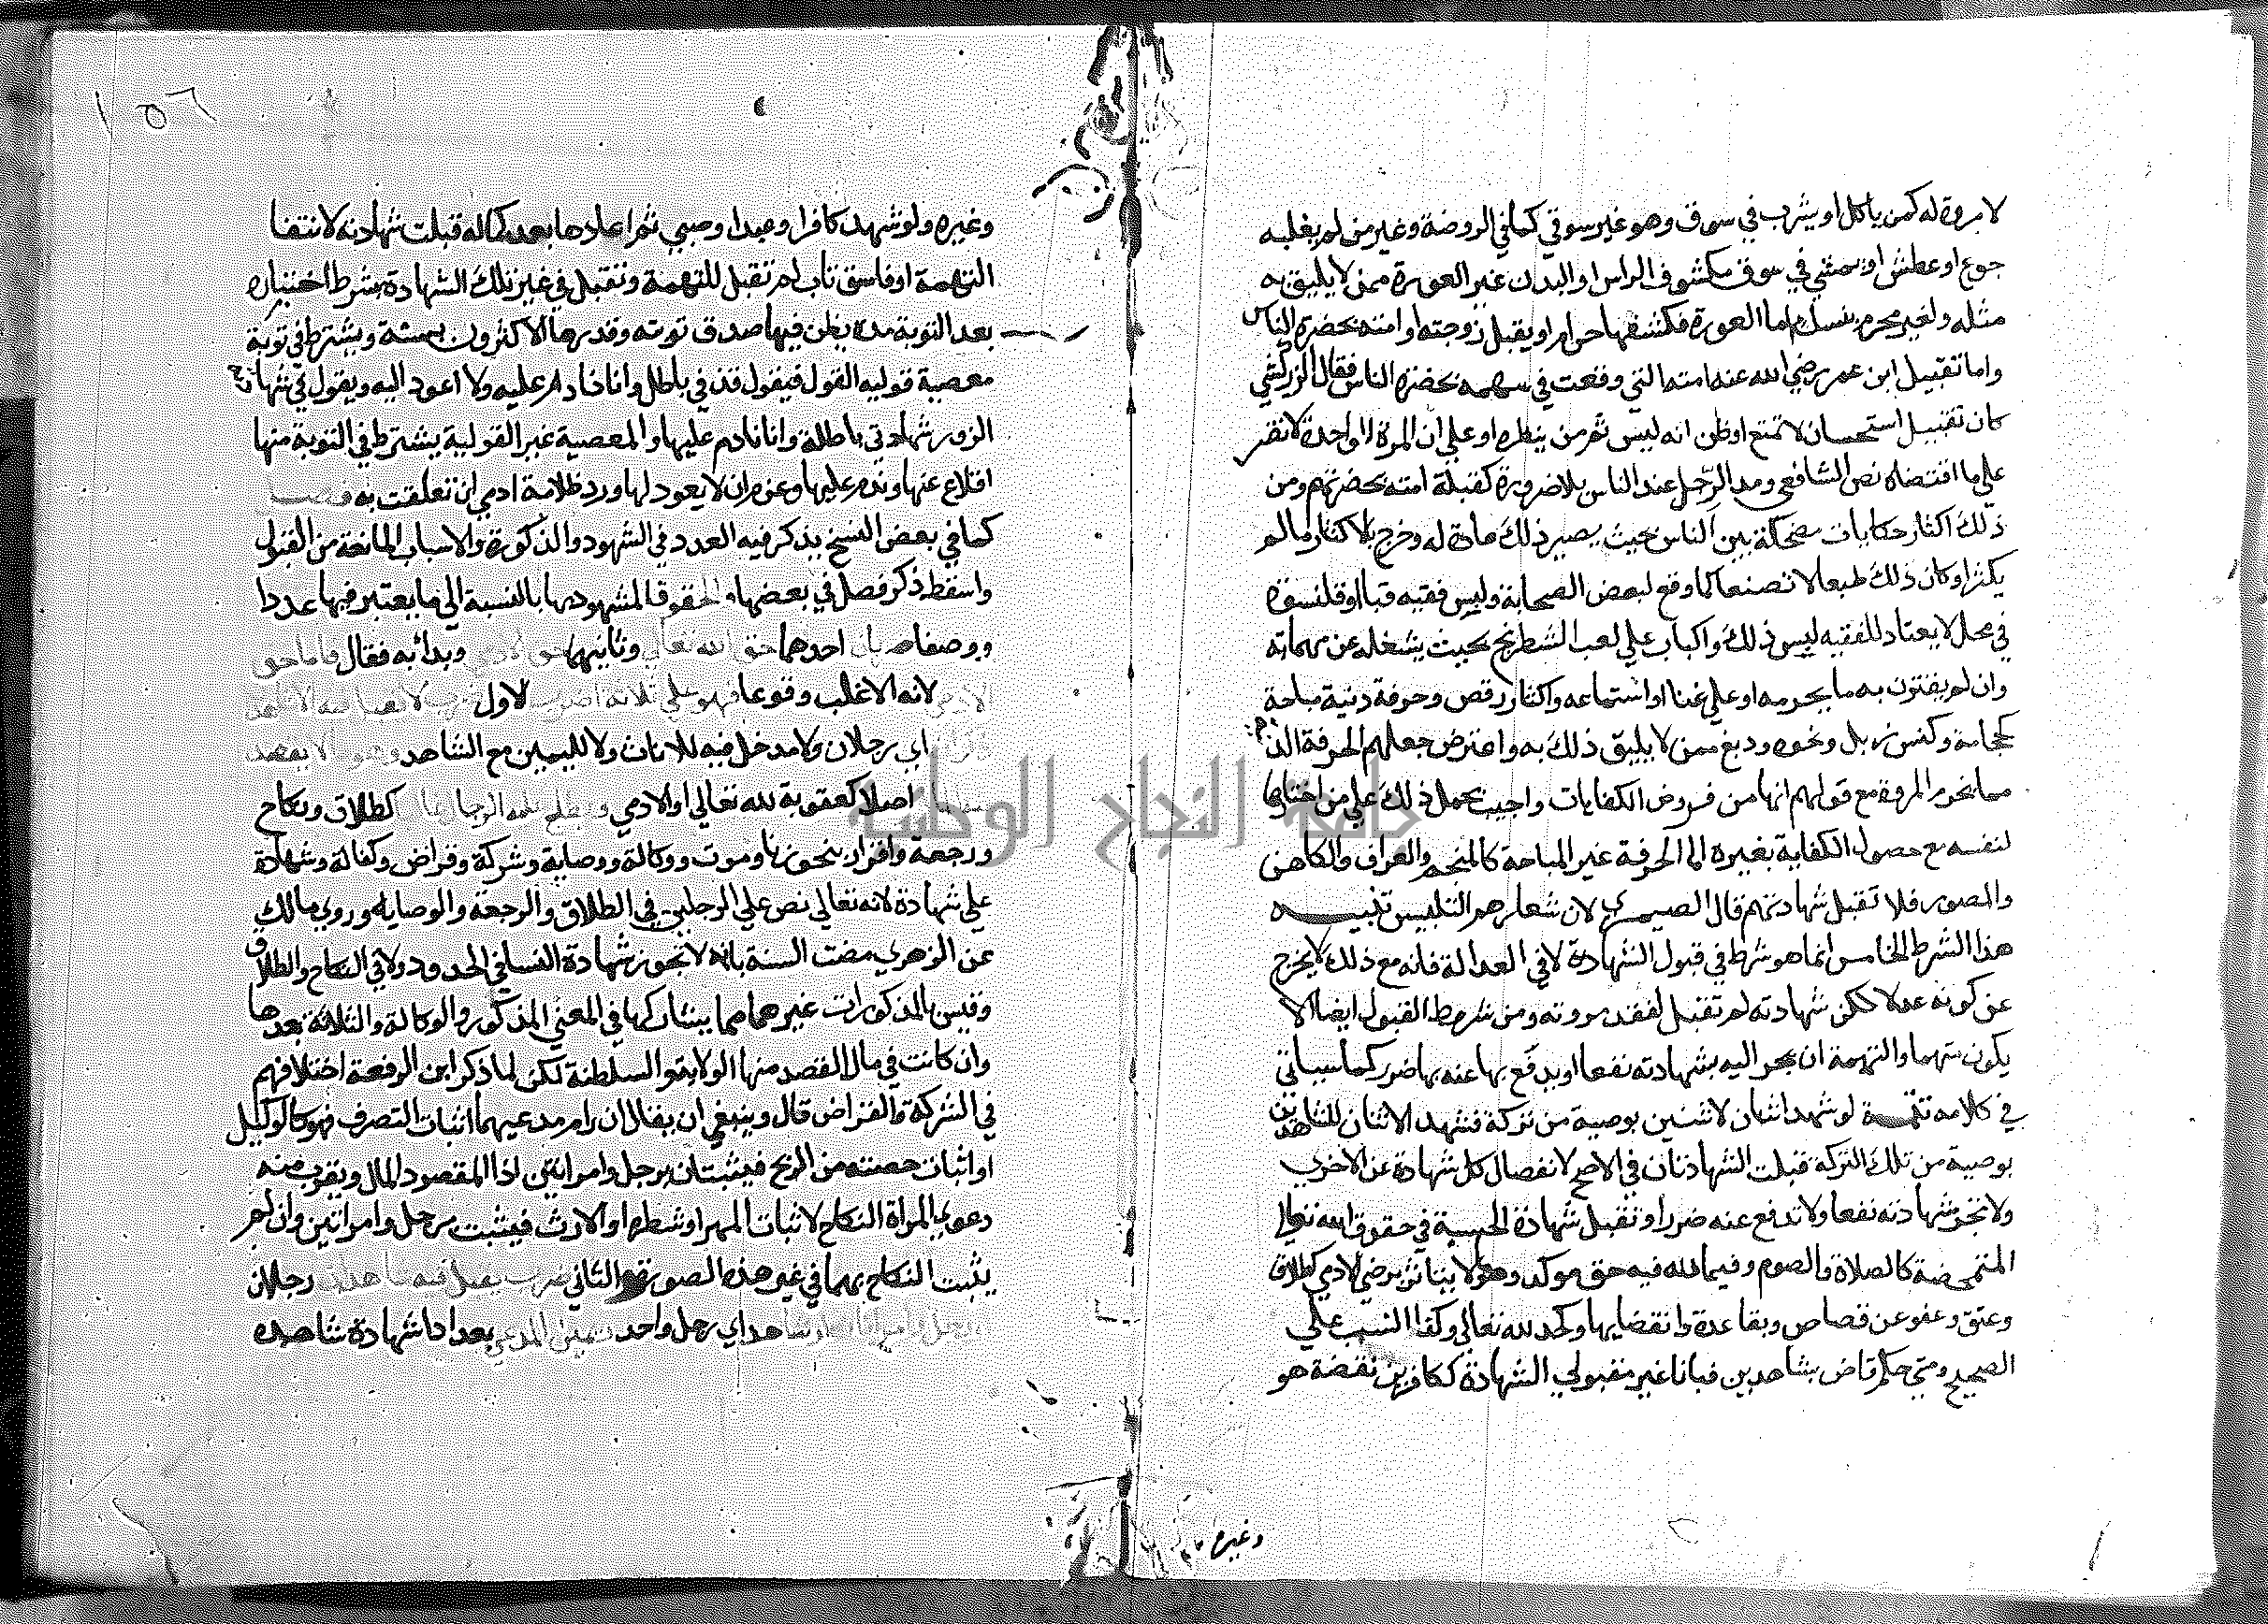 لا مروة له كمن ياكل او يشرب في سوق وهو غير سوقي كما في الروضة وغير من لم يغلبه
جوع او عطش او يمشي في سوق مكشوف الراس او البدن غير العورة ممن لا يليق به
مثله ولغير محرم بنسك اما العورة فكشفها حرام او يقبل زوجته او امته بحضرة الناس
واما تقبيل ابن عمر رضي الله عنه امته التي وقعت في سهمه بحضرة الناس فقال الزركشي
كان تقبيل استحسان لا تمتع او ظن انه ليس ثم من ينظره او علي ان المرة الواحدة لا تضر
علي ما اقتضاه نص الشافعي ومد الرجل عند الناس بلا ضرورة كقبلة امته بحضرتهم ومن
ذلك اكثار حكايات مضحكة بين الناس حيث يصير ذلك عادة له وخرج بالاكثار ما لم
يكثر او كان ذلك طبعا لا تصنعا كما وقع لبعض الصحابة ولبس فقيه قبا او قلنسوة
في محل لا يعتاد للفقيه لبس ذلك واكباب علي لعب الشطرنج بحيث يشغله عن مهماته
وان لم يقترن به ما يحرمه او علي غنا او استماعه واكثار رقص وحرفة دنية مباحة
كحجامة وكنس زبل ونحوه ودبغ ممن لا يليق ذلك به واعترض جعلهم الحرفة الدنية
مما يخرم المروة مع قولهم انها من فروض الكفايات واجيب بحمل ذلك علي من اختارها
لنفسه مع حصول الكفاية بغيره اما الحرفة غير المباحة كالمنجم والعراف والكاهن
والمصور فلا تقبل شهادتهم قال الصيمري لان شعارهم التلبيس تنبيه
هذا الشرط الخامس انما هو شرط في قبول الشهادة لا في العدالة فانه مع ذلك لا يخرج
عن كونه عدلا لكن شهادته لم تقبل لفقد مروته ومن شروط القبول ايضا الا
يكون متهما والتهمة ان يجر اليه بشهادته نفعا او يدفع بها عنه بها ضرر كما سياتي
في كلامه تتمة لو شهد اثنان لاثنين بوصية من تركة فشهد الاثنان للشاهدين
بوصية من تلك التركة قبلت الشهادتان في الاصح لانفصال كل شهادة عن الاخري
ولا تجر شهادته نفعا ولا تدفع عنه ضررا وتقبل شهادة الحسبة في حقوق الله تعالي
المتمحضة كالصلاة والصوم وفيما لله فيه حق موكد وهو لا يتاثر برضي الادمي كطلاق
وعتق وعفو عن قصاص وبقا عدة وانقضايها وكحد لله تعالي وكذا النسب علي
الصحيح ومتي حكم قاض بشاهدين فبانا غير مقبولي الشهادة ككافرين نقضه هو
وغيره
١٥٦
وغيره ولو شهد كافر او عبد او صبي ثم اعادها بعد كماله قبلت شهادته لانتفا
التهمة او فاسق تاب لم تقبل للتهمة وتقبل في غير تلك الشهادة بشرط اختباره
بعد التوبة مدة يظن فيها صدق توبته وقدرها الاكثرون بسنة ويشترط في توبة
معصية قوليه القول فيقول قذفي باطل وانا نادم عليه ولا اعود اليه ويقول في شهادة
الزور شهادتي باطلة وانا نادم عليها والمعصية غير القولية يشترط في التوبة منها
اقلاع عنها وندم عليها وعزم ان لا يعود لها ورد ظلامة ادمي ان تعلقت به فصل
كما في بعض النسخ يذكر فيه العدد في الشهود والذكورة والاسباب المانعة من القبول
واسقط ذكر فصل في بعضها والحقوق المشهود بها بالنسبة الي ما يعتبر فيها عددا
ووصفا ضربان احدهما حق الله تعالي وثانيهما حق الادمي وبدا به فقال فاما حق
الادمي لانه الاغلب وقوعا فهو علي ثلاثة اضرب الاول ضرب لا يقبل فيه الا شاهد
اي رجلان ولا مدخل فيه للاناث ولا لليمين مع الشاهد وهو ما لا يقصد
اصلا كعقوبة لله تعالي او لادمي ويطلع عليه الرجال كطلاق ونكاح
ورجعة واقرار بنحو زنا وموت ووكالة ووصاية وشركة وقراض وكفالة وشهادة
علي شهادة لانه تعالي نص علي الرجلين في الطلاق والرجعة والوصاية وروي مالك
عن الزهري مضت السنة بانه لا تجوز شهادة النسا في الحدود ولا في النكاح والطلاق
وقيس بالمذكورات غيرها مما يشاركها في المعني المذكور والوكالة والثلاثة بعدها
وان كانت في مال القصد منها الولاية والسلطنة لكن لما ذكر ابن الرفعة اختلافهم
في الشركة والقراض قال وينبغي ان يقال ان رام مدعيهما اثبات التصرف فهو كالوكيل
او اثبات حصته من الربح فيثبتان برجل وامراتين اذا المقصود المال ويقرب منه
دعوي المراة النكاح لاثبات المهر او شطره او الارث فيثبت برجل وامراتين وان لم
يثبت النكاح بهما في غير هذه الصورة والثاني ضرب يقبل فيه شاهدان رجلان
او رجل وامراتان او شاهد اي رجل واحد ويمين المدعي بعد ادا شهادة شاهده
جامعة النجاح الوطنية